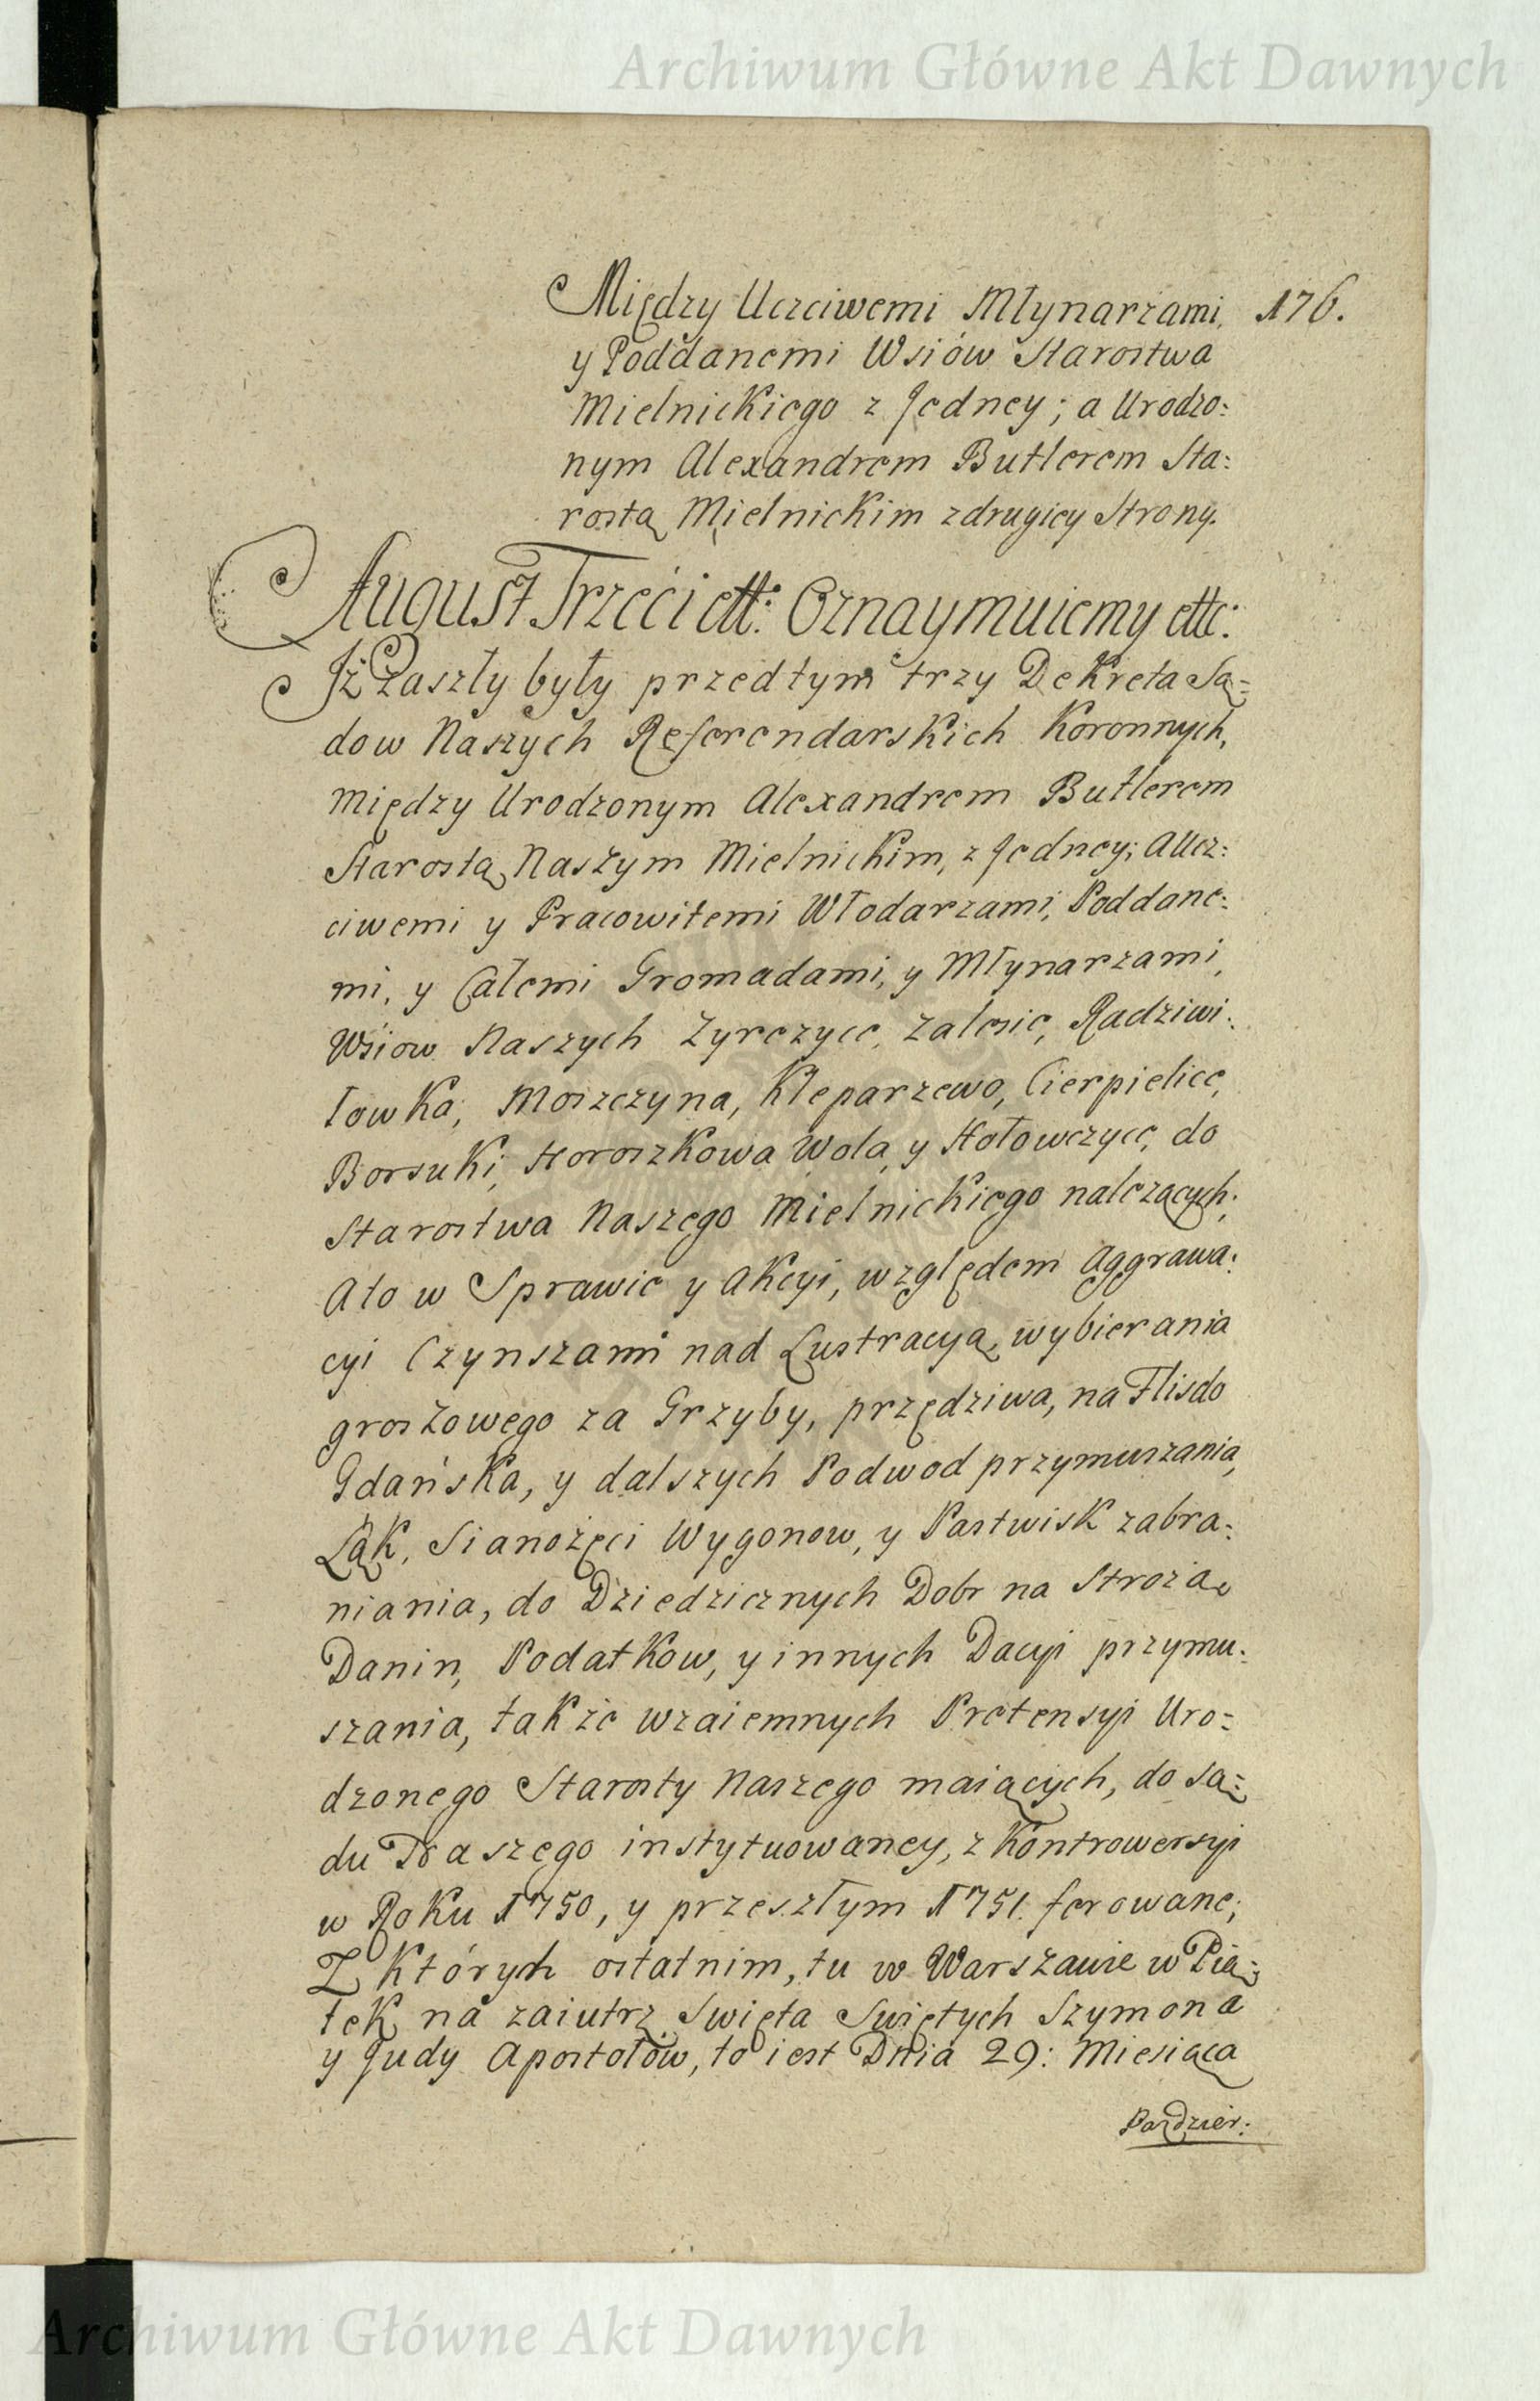 Archiwum Główne Akt Dawnych
Między Uczciwemi Młynarzami, 176.
y Poddanemi Wsiów Starostwa
Mielnickiego z Jedney; a Urodzo:
nym Alexandrem Butlerem Sta:
rostą Mielnickim zdrugiey Strony.
August Trzeci ett: Oznaymuiemy ettc:
Iż Zaszły były przedtym trzy Dekreta Są=
dow Naszych Referendarskich Koronnych,
między Urodzonym Alexandrem Butlerem
Starostą Naszym Mielnickim, z Jedney; a Ucz:
ciwemi y Pracowitemi Włodarzami, Poddane:
mi, y Całemi Gromadami, y Młynarzami,
Wsiow Naszych Zyrczyce, Zalesie, Radziwi:
łowka, Moszczyna, Kleparzewo, Cierpielice,
Borsuki, Horoszkowa Wola, y Hołowczyce, do
Starostwa Naszego Mielnickiego należących;
Ato w Sprawie y Akcyi, względem Aggrawa:
cyi Czynszami nad Lustracyą, wybierania
groszowego za Grzyby, przędziwa, na Flis do
Gdańska, y dalszych Podwod przymuszania,
Łąk, Sianożęci Wygonow, y Pastwisk zabra:
niania, do Dziedzicznych Dobr na Strożą
Danin, Podatkow, y innych Dacyi przymu:
szania, także wzaiemnych Pretensyi Uro=
dzonego Starosty Naszego maiących, do Są=
du Naszego instytuowaney, z Kontrowersyi
w Roku 1750, y przeszłym 1751. ferowane;
Z Których ostatnim, tu w Warszawie w Pią=
tek na zaiutrz Swięta Swiętych Szymona
y Judy Apostołów, to iest Dnia 29: Miesiąca
Pazdzier:
Archiwum Główne Akt Dawnych